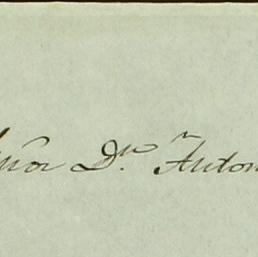 Señor Dn. Anton